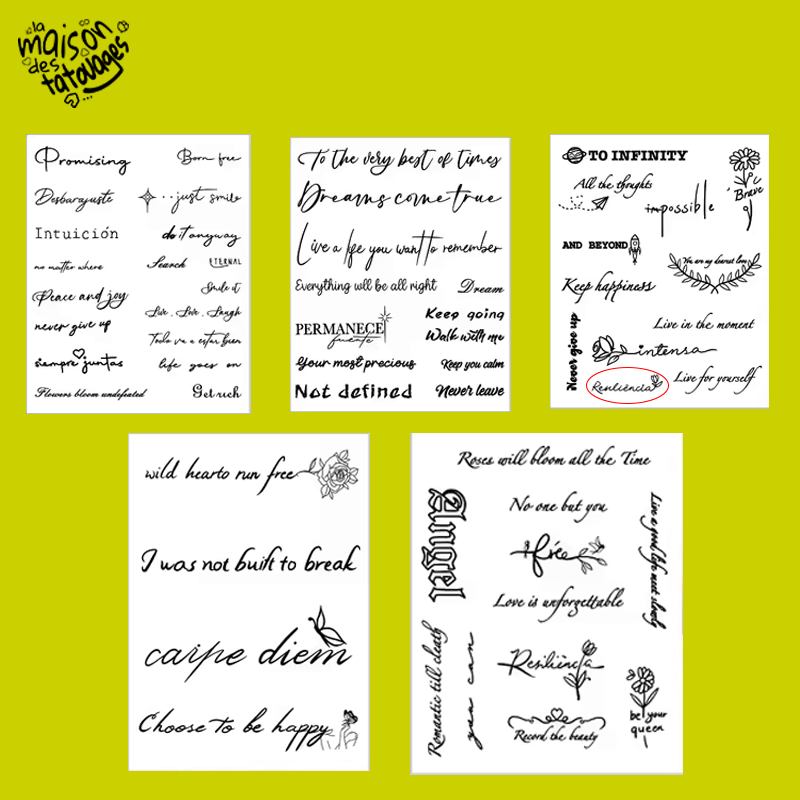 la
maison
des
tatouages
Promising
Born free
Desbarajuste
just smile
Intuición
do it anyway
no matter where
Search
ETERNAL
Peace and joy
Smile it
Live, Live, Laugh
never give up
Todo va a estar bien
siempre juntas
life goes on
Flowers bloom undefeated
Get rich
To the very best of times
Dreams come true
Live a life you want to remember
Everything will be all right
Dream
PERMANECE
fuerte
Keep going
Walk with me
Your most precious
Keep you calm
Not defined
Never leave
TO INFINITY
All the thoughts
impossible
Brave
AND BEYOND
You are my dearest love
Keep happiness
Never give up
Live in the moment
intensa
Resiliencia
Live for yourself
wild hearto run free
I was not built to break
carpe diem
Choose to be happy
Roses will bloom all the Time
Angel
No one but you
Live a good life meet slowly
free
Love is unforgettable
Romantic till death
you can
Resiliencia
be your
queen
Record the beauty